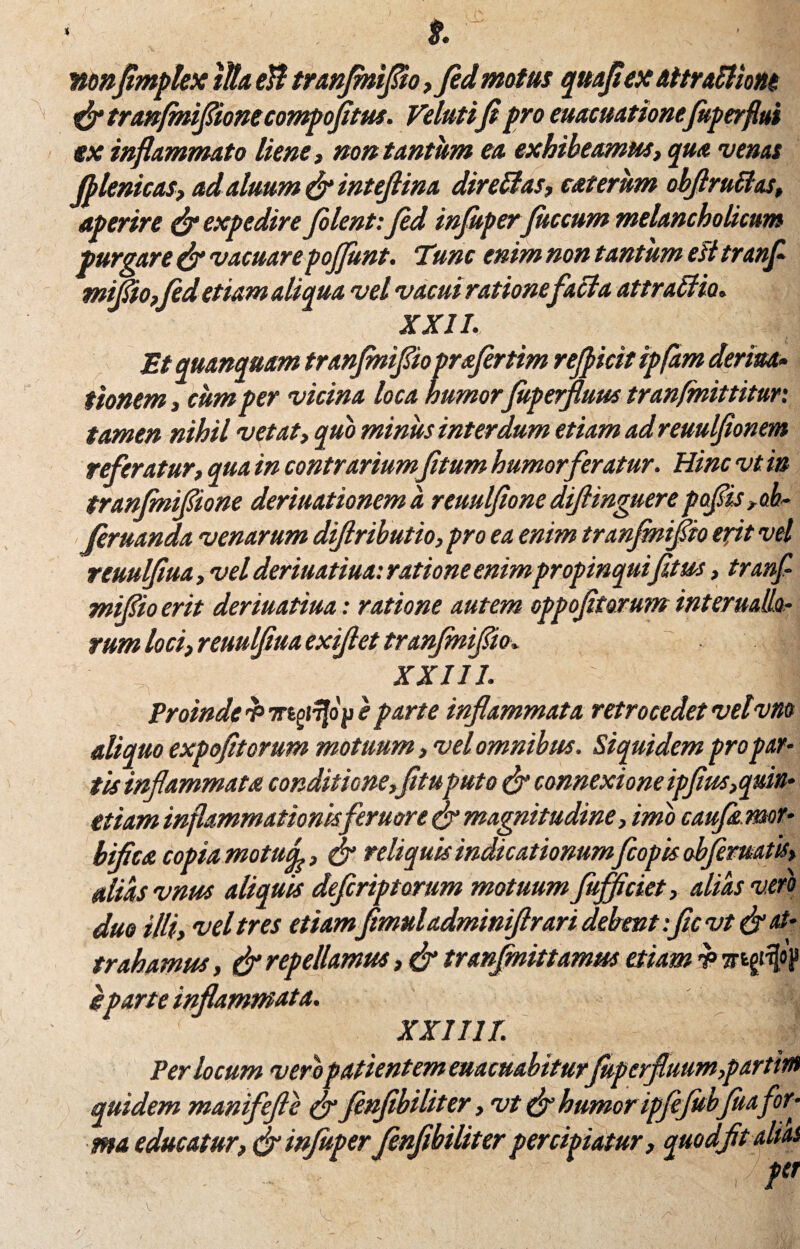 8.
non ſimplex illa eſt tranſmiſsio, ſed motus quaſi ex attractione
& tranſmiſsione compoſitus. Veluti ſi pro euacuatione ſuperflui
ex inflammato liene, non tantùm ea exhibeamus, quæ venas
ſplenicas, ad aluum & inteſtina directas, cæterùm obſtructas,
aperire & expedire ſolent: ſed inſuper ſuccum melancholicum
purgare & vacuare poſſunt. Tunc enim non tantùm eſt tranſ-
miſsio, ſed etiam aliqua vel vacui ratione facta attractio.
XXII.
Et quanquam tranſmiſsio præſertim reſpicit ipſam deriua-
tionem, cùm per vicina loca humor ſuperfluus tranſmittitur:
tamen nihil vetat, quò minùs interdum etiam ad reuulſionem
referatur, qua in contrarium ſitum humor feratur. Hinc vt in
tranſmiſsione deriuationem à reuulſione diſtinguere poſsis, ob-
ſeruanda venarum diſtributio, pro ea enim tranſmiſsio erit vel
reuulſiua, vel deriuatiua: ratione enim propinqui ſitus, tranſ-
miſsio erit deriuatiua: ratione autem oppoſitorum interuallo-
rum loci, reuulſiua exiſtet tranſmiſsio.
XXIII.
Proinde è parte inflammata retrocedet vel vno
aliquo expoſitorum motuum, vel omnibus. Siquidem pro par-
tis inflammatæ conditione, ſitu puto & connexione ipſius, quin-
etiam inflammationis feruore & magnitudine, imò cauſæ mor-
bificæ copia motuq́;, & reliquis indicationum ſcopis obſeruatis,
aliàs vnus aliquis deſcriptorum motuum ſufficiet, aliàs verò
duo illi, vel tres etiam ſimul adminiſtrari debent: ſic vt & at-
trahamus, & repellamus, & tranſmittamus etiam
è parte inflammata.
XXIIII.
Per locum verò patientem euacuabitur ſuperfluum, partim
quidem manifeſtè & ſenſibiliter, vt & humor ipſe ſub ſua for-
ma educatur, & inſuper ſenſibiliter percipiatur, quod fit aliàs
per